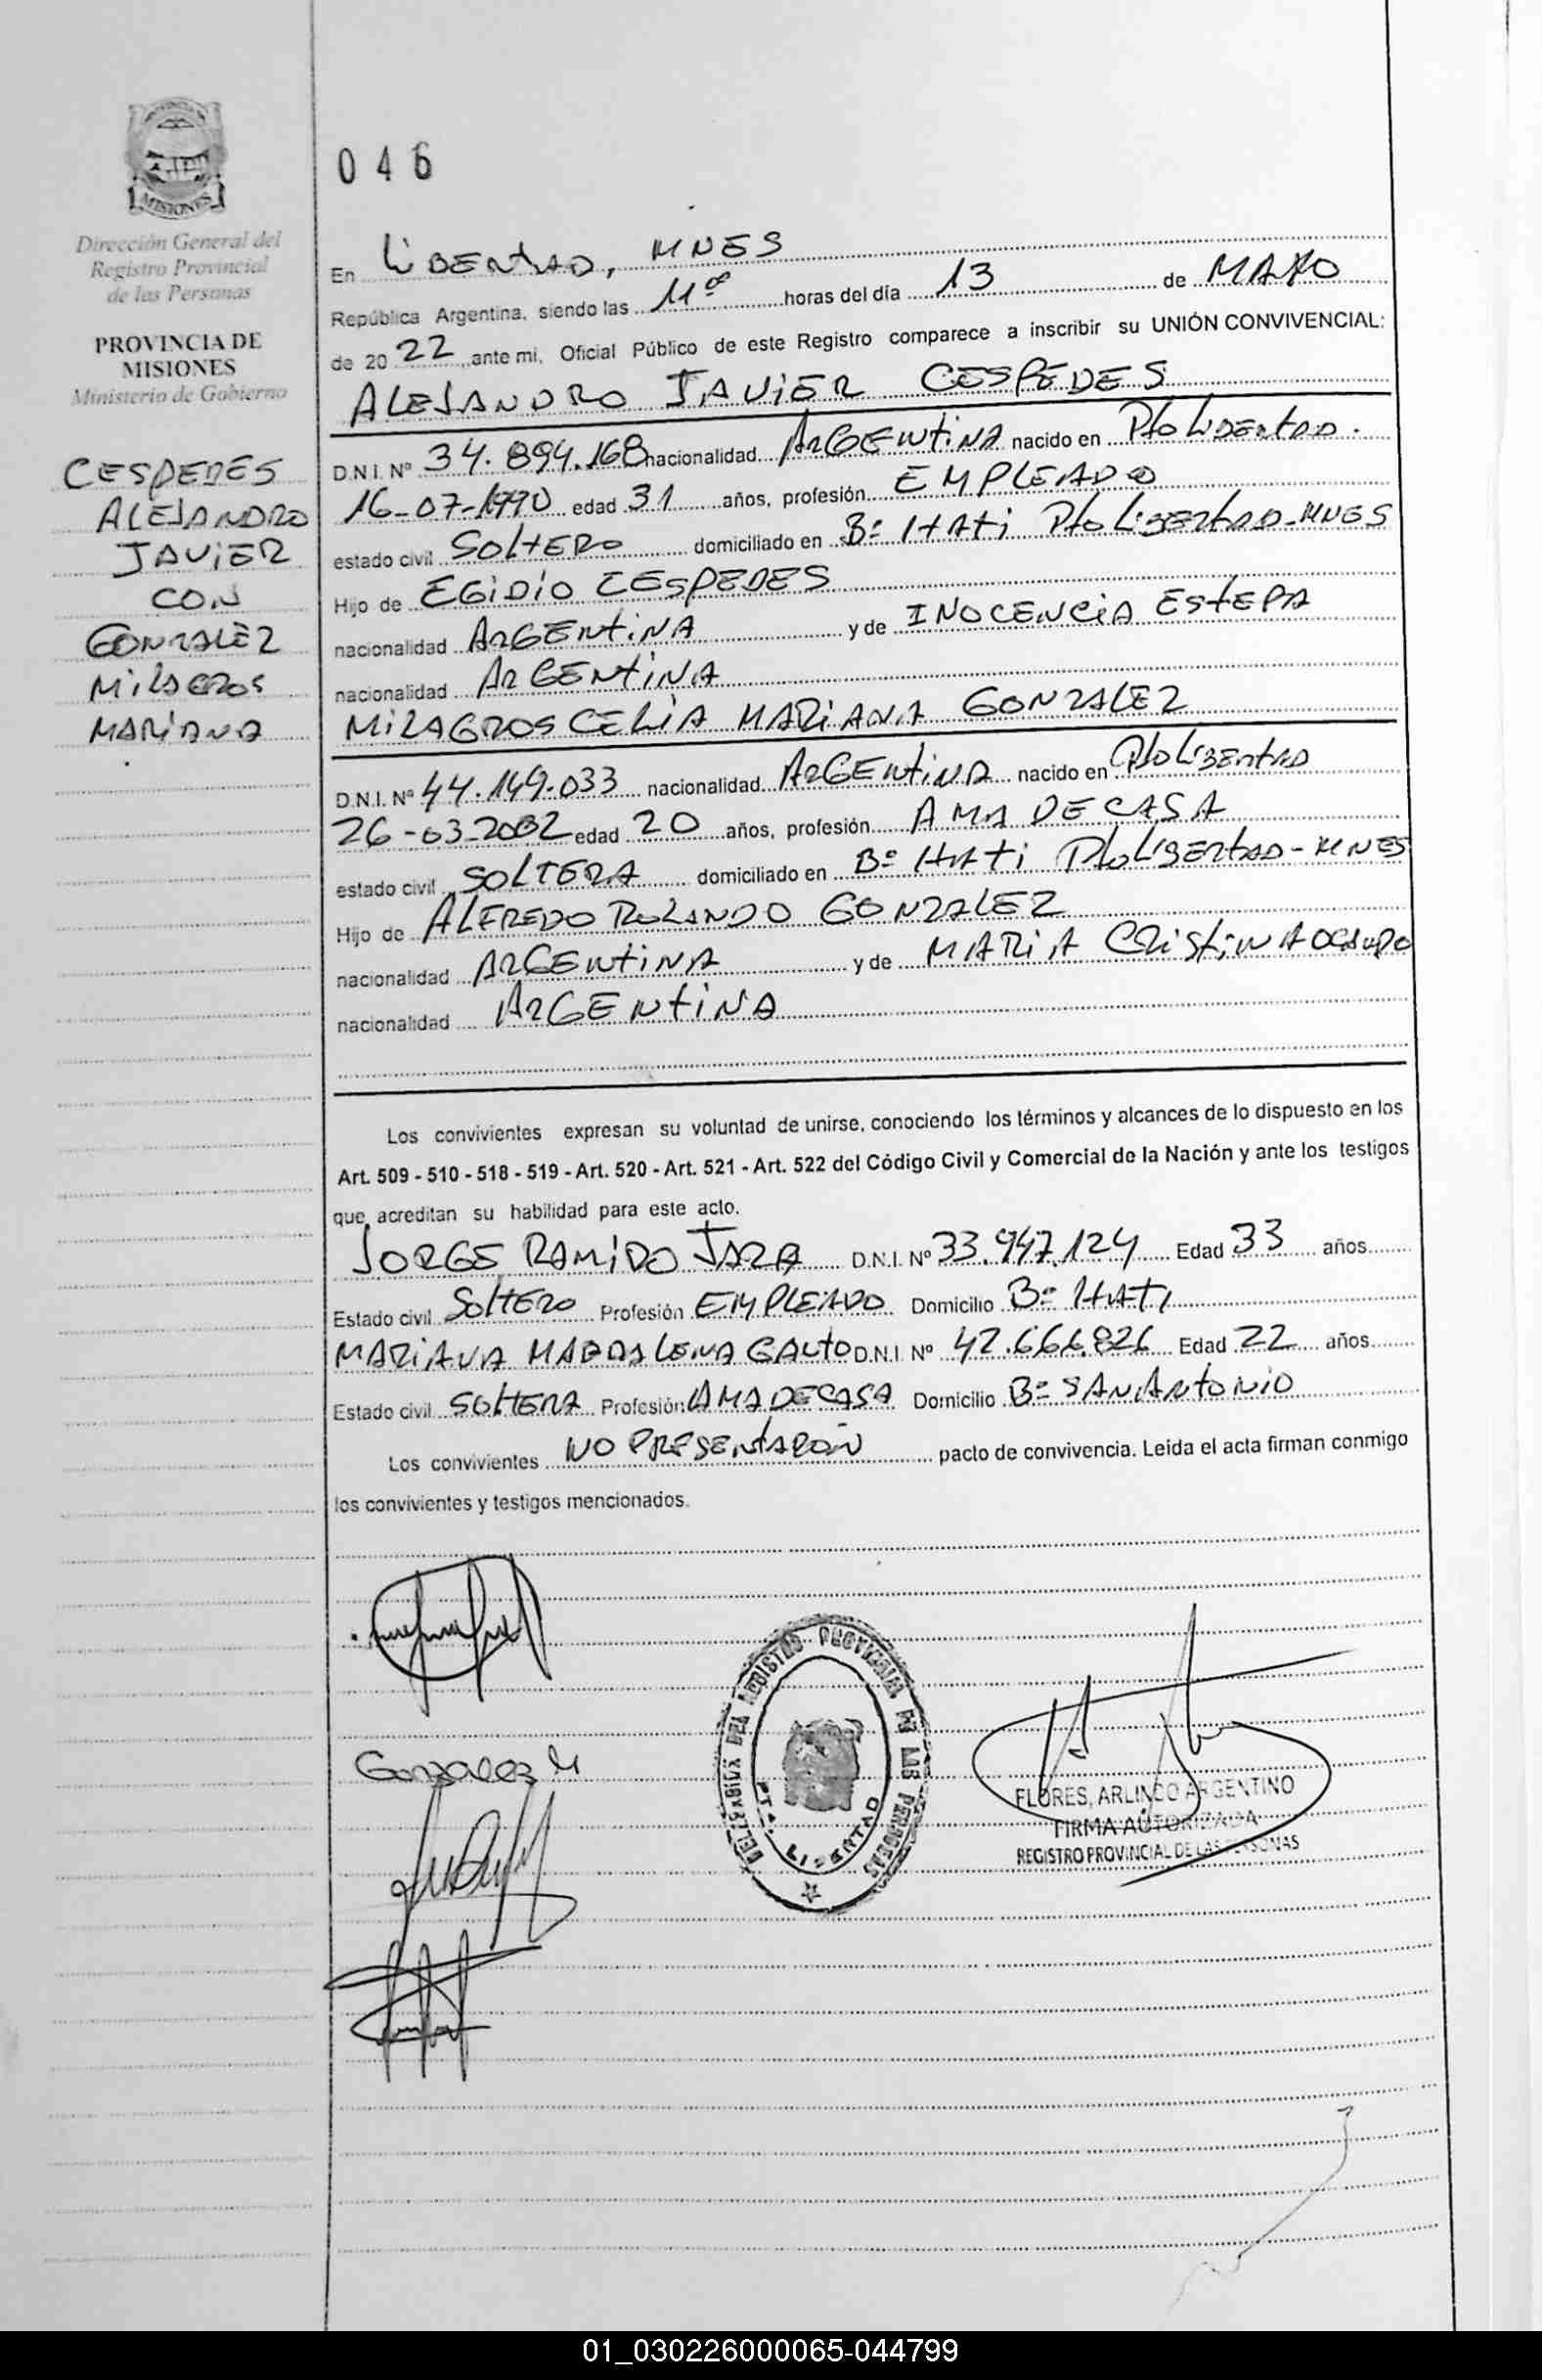 MISIONES
Dirección General del
Registro Provincial
de las Personas
PROVINCIA DE
MISIONES
Ministerio de Gobierno
CESPEDES
ALEJANDRO
JAVIER
CON
GONZALEZ
MILAGROS
MARIANA
046
En LIBERTAD, MNES
República Argentina, siendo las 11ºº horas del día 13 de MAYO
de 2022, ante mi, Oficial Público de este Registro comparece a inscribir su UNIÓN CONVIVENCIAL:
ALEJANDRO JAVIER CESPEDES
D.N.I. Nº 34.894.168 nacionalidad ARGENTINA nacido en Pto LIBERTAD.
16-07-1990 edad 31 años, profesión EMPLEADO
estado civil SOLTERO domiciliado en Bº ITATI Pto LIBERTAD-MNES
Hijo de EGIDIO CESPEDES
nacionalidad ARGENTINA y de INOCENCIA ESTEPA
nacionalidad ARGENTINA
MILAGROS CELIA MARIANA GONZALEZ
D.N.I. Nº 44.149.033 nacionalidad ARGENTINA nacido en Pto LIBERTAD
26-03-2002 edad 20 años, profesión AMA DE CASA
estado civil SOLTERA domiciliado en Bº ITATI Pto LIBERTAD-MNES
Hijo de ALFREDO ROLANDO GONZALEZ
nacionalidad ARGENTINA y de MARIA CRISTINA OCAMPO
nacionalidad ARGENTINA
Los convivientes expresan su voluntad de unirse, conociendo los términos y alcances de lo dispuesto en los
Art. 509 - 510 - 518 - 519 - Art. 520 - Art. 521 - Art. 522 del Código Civil y Comercial de la Nación y ante los testigos
que acreditan su habilidad para este acto.
JORGE RAMIRO JARA D.N.I. Nº 33.947.124 Edad 33 años
Estado civil SOLTERO Profesión EMPLEADO Domicilio Bº ITATI
MARIANA MAGDALENA GAUTO D.N.I. Nº 42.666.826 Edad 22 años
Estado civil SOLTERA Profesión AMA DE CASA Domicilio Bº SAN ANTONIO
Los convivientes NO PRESENTARON pacto de convivencia. Leida el acta firman conmigo
los convivientes y testigos mencionados.
Gonzalez M
DEL REGISTRO PROVINCIAL DE LAS PERSONAS
PTO. LIBERTAD
FLORES, ARLINDO ARGENTINO
FIRMA AUTORIZADA
REGISTRO PROVINCIAL DE LAS PERSONAS
01_030226000065-044799